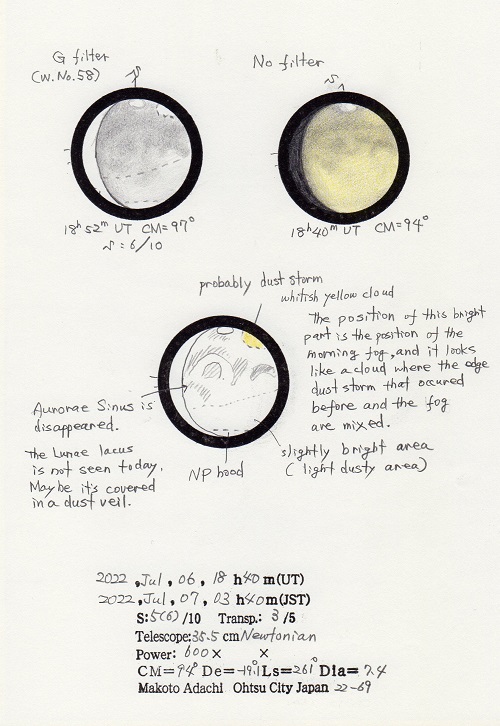 G filter
(W.No.58)
No filter
S
S
18h 52m UT CM=97°
S:6/10
18h40m UT CM=94°
probably dust storm
whitish yellow cloud
The position of this bright
part is the position of the
morning fog, and it looks
like a cloud where the edge
dust storm that occured
before and the fog
are mixed.
Aurorae Sinus is
disappeared.
The Lunae lacus
is not seen today.
Maybe it's covered
in a dust veil.
NP hood
slightly bright area
(light dusty area)
2022 , Jul , 06 , 18 h40m(UT)
2022 , Jul , 07 , 03 h40m(JST)
S:5(6)/10 Transp.: 3/5
Telescope:35.5 cm Newtonian
Power: 600× ×
CM=94° De=-19.1 Ls=261° Dia=7.4
Makoto Adachi Ohtsu City Japan 22-69